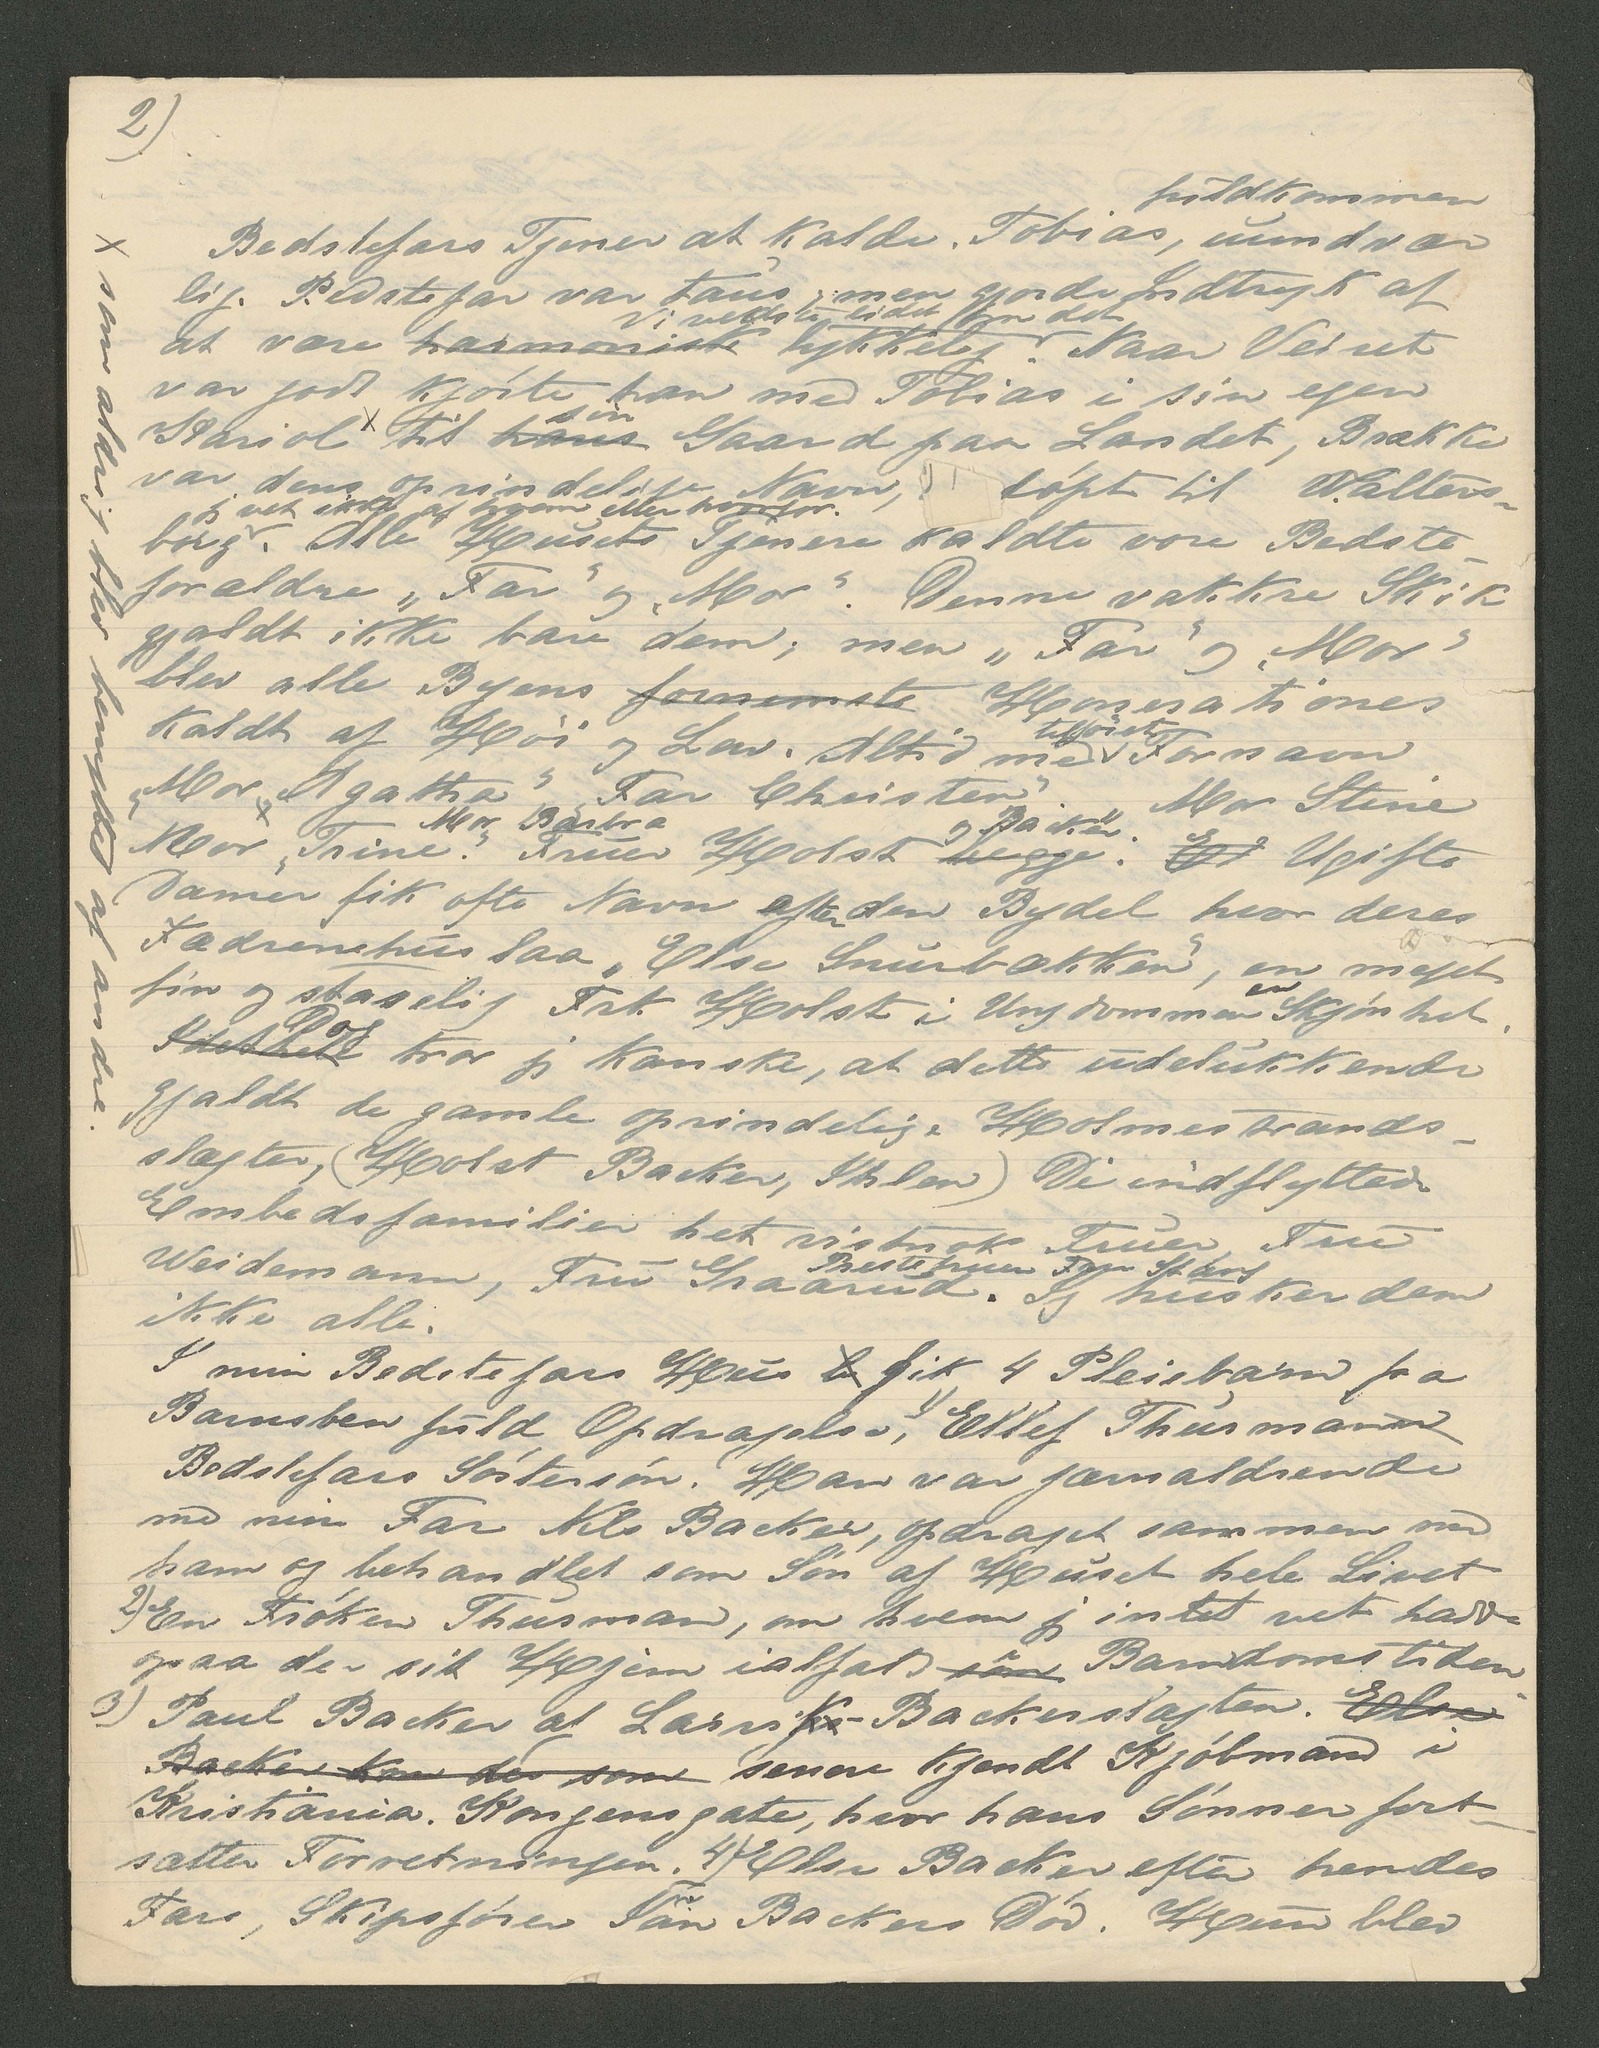 2)
fuldkommen
Bedstefars Tjener at kalde. Tobias, uundvær
lig. Bedstefar var taus, men gjorde Indtryk af
Vi vedste lidet om det
at være harmonisk lykkelig. Naar Veiret
var godt kjørte han med Tobias i sin egen
sin
Kariol x til hans Gaard paa Landet, Brække
var dens oprindelige Navn, løpt til Walters-
jeg vet ikke af hvem eller hvorfor.
borg. Alle Husets Tjenere kaldte vore Bedste-
forældre „Far" og „Mor". Denne vakkre Skik
gjaldt ikke bare dem; men „Far" og „Mor"
blev alle Byens fornemste Honorationes
kaldt af Høi og Lav. Altid med tilføiet Fornavn
„Mor Agatha" „Far Christen" „Mor Stine
Mor Barbra og Backer"
Mor „Trine." Fruer Holst begge. Et Ugifte
Damer fik ofte Navn efter den Bydel hvor deres
Fædrenehus laa „Else Snurbækken", en meget
fin og staselig Frk Holst i Ungdommen en Skjønhet.
Dog
Idethele tror jg kanske, at dette udelukkende
gjaldt de gamle oprindelige Holmestrands-
slægter, (Holst Backer, Ihlen) De indflyttede
Embedsfamilier het vistnok Fruer, Fru
Prestefruen Fru Stang
Weidemann, Fru Graarud. Jg husker dem
ikke alle.
I min Bedstefars Hus b fik 4 Pleiebarn fra
Barnsben fuld Opdragelse, 1) Ellef Thurmann
Bedstefars Søstersøn. Han var jævnaldrende
med min Far Nils Backer, opdraget sammen med
ham og behandlet som Søn af Huset hele Livet
2) En Frøken Thurman, om hvem jg intet vet hadde
ogsaa der sit Hjem ialfald sin Barndomstiden
3) Paul Backer af Larviks-Backerslægten. Else
Backer kom der som senere kjendt Kjøbmand i
Kristiania. Kongensgate, hvor hans Sønner fort-
sætter Forretningen. 4) Else Backer efter hendes
Fars, Skipsfører Jan Backers Død. Hun blev
x som aldrig blev benyttet af andre.